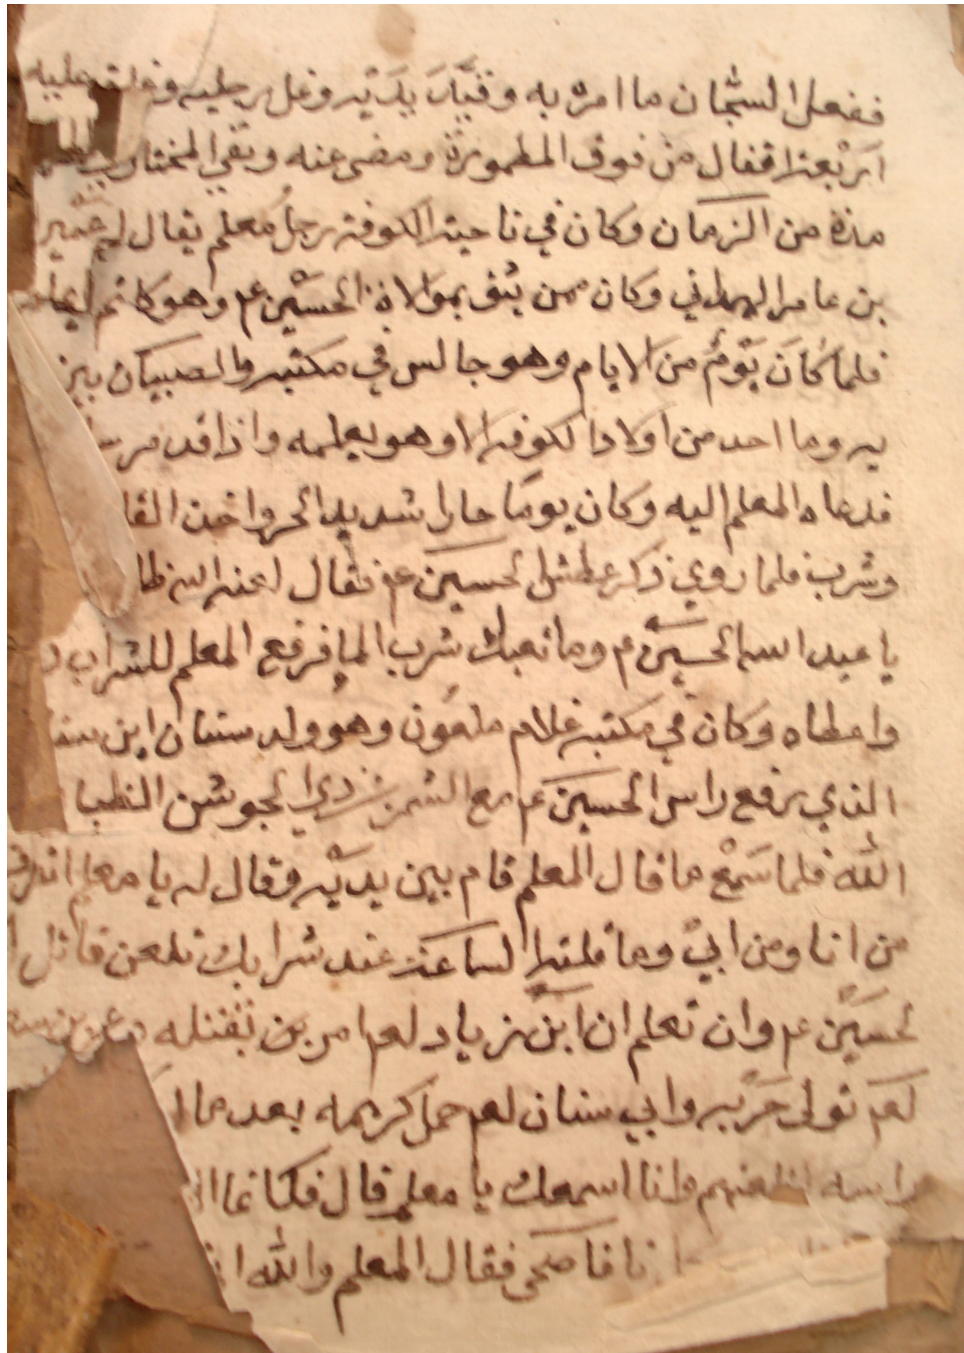 ففعل السجان ما امره به وقيد يديه وغل رجليه وغلق عليه
اربعة اقفال من فوق المطمورة ومضى عنه وبقي المختار
مدة من الزمان وكان في ناحية الكوفة رجل معلم يقال له عمير
بن عامر الهمداني وكان ممن يثق بموالاة الحسين عم وهو كاتم
فلما كان يوم من الايام وهو جالس في مكتبه والصبيان بين
يه وما احد من اولاد الكوفة الا وهو يعلمه واذا قد مر
فدعاه المعلم اليه وكان يوما حارا شديد الحر واخذ
وشرب فلما روي ذكر عطش الحسين عم فقال لعنه الله
يا عبد الله الحسين عم وما نعبك شرب الما فرفع المعلم للشراب
واعطاه وكان في مكتبه غلام ملعون وهو ولد سنان ابن
الذي رفع راس الحسين عم مع الشمر بن ذي الجوشن
الله فلما سمع ما قال المعلم قام بين يديه وقال له يا معلم
من انا ومن ابي وما قلته الساعة عند شرابك تلعن قاتل
لحسين عم وان تعلم ان ابن زياد لعم امر بن بقتله
لعم تولى حربه وابي سنان لعم حمل كريمه بعد ما
راسه وانا اسمعك يا معلم قال فكانما
فقال المعلم والله